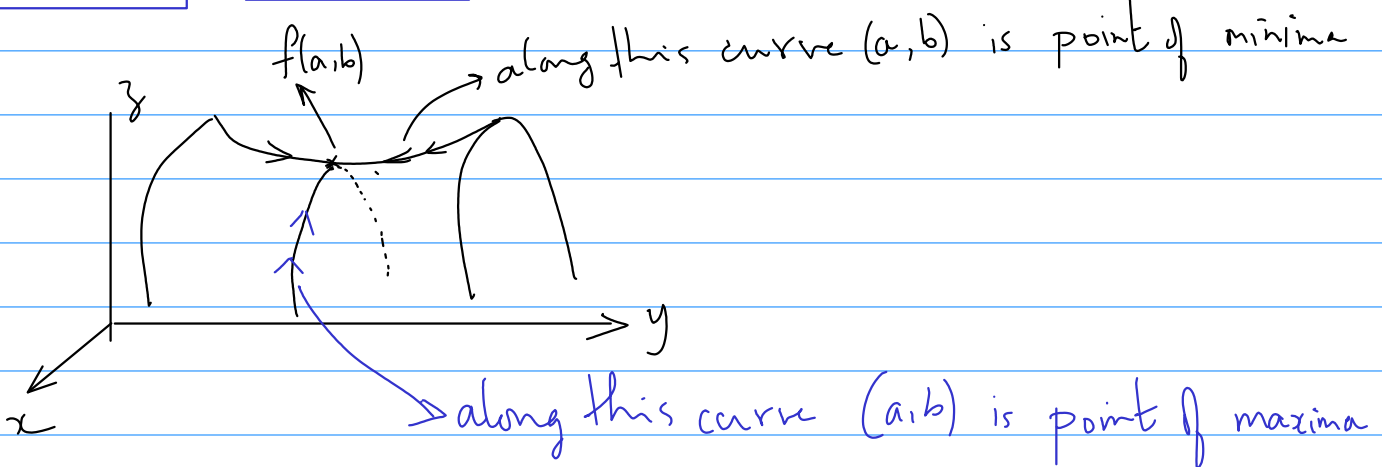 f(a,b)
along this curve (a,b) is point of minima
z
y
x
along this curve (a,b) is point of maxima